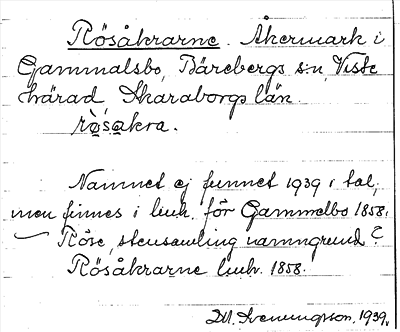 Rösåkrarne. Åkermark i
Gammalsbo, Bärebergs s:n, Viste
härad, Skaraborgs län.
rö̀såkra.
Namnet ej funnet 1939 i tal,
men finnes i lmh. för Gammelbo 1858.
Röse, stensamling namngrund?
Rösåkrarne lmh. 1858.
1939.